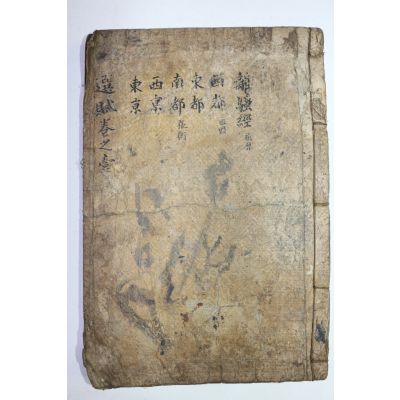 離騷經
西都
東都
南都 張衡
西京
東京
選賦卷之壹